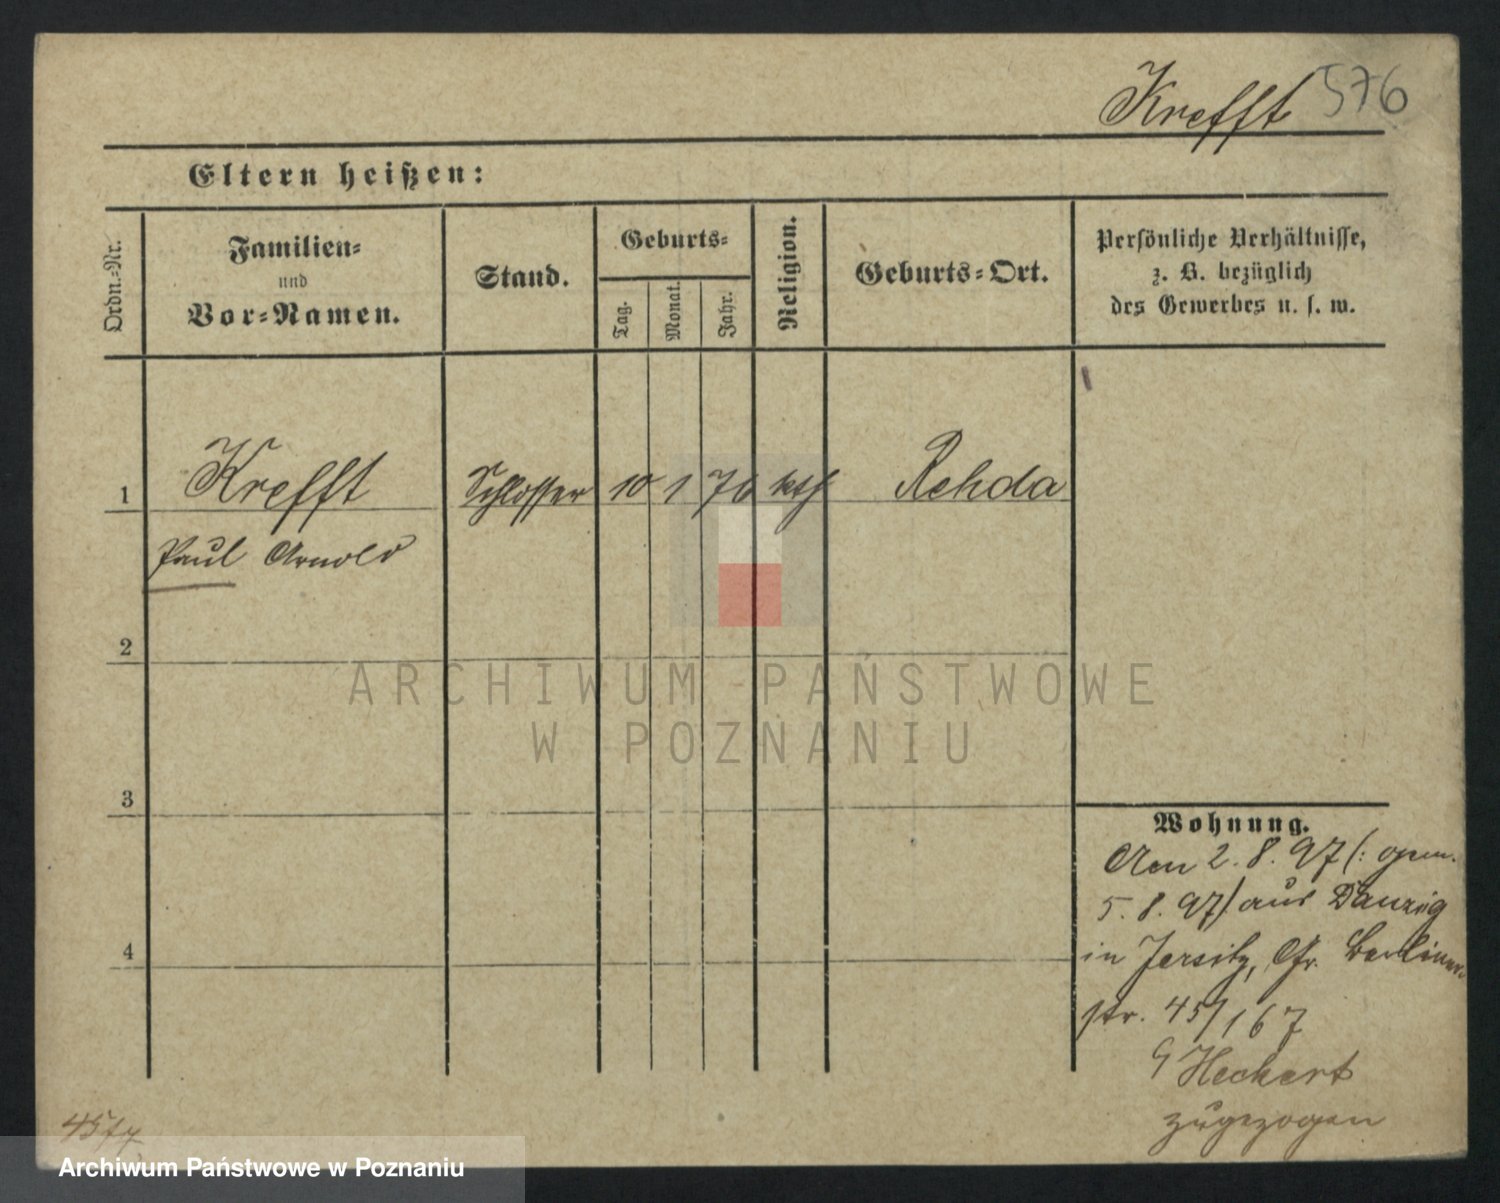 Krefft 576
Eltern heißen:
Ordn.-Nr.
Familien-
und
Vor-Namen.
Stand.
Geburts-
Tag.
Monat.
Jahr.
Religion.
Geburts-Ort.
Persönliche Verhältnisse,
z. B. bezüglich
des Gewerbes u. s. w.
1 Krefft Schlosser 10 1 76 kth Rehda
Paul Arnold
2
3
4
ARCHIWUM PAŃSTWOWE
W POZNANIU
Wohnung.
Am 2. 8. 97 (: gem.
5. 8. 97/ aus Danzig
in Jersitz, Gr. Berliner-
str. 45/167
Heckert
zugezogen
Archiwum Państwowe w Poznaniu